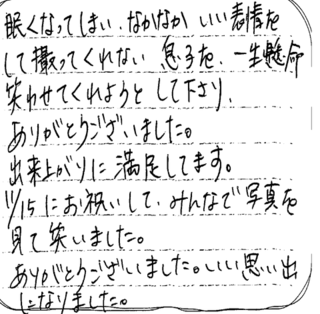 眠くなってしまい、なかなかいい表情を
して撮ってくれない息子を、一生懸命
笑わせてくれようとして下さり、
ありがとうございました。
出来上がりに満足してます。
11/15にお祝いして、みんなで写真を
見て笑いました。
ありがとうございました。いい思い出
になりました。